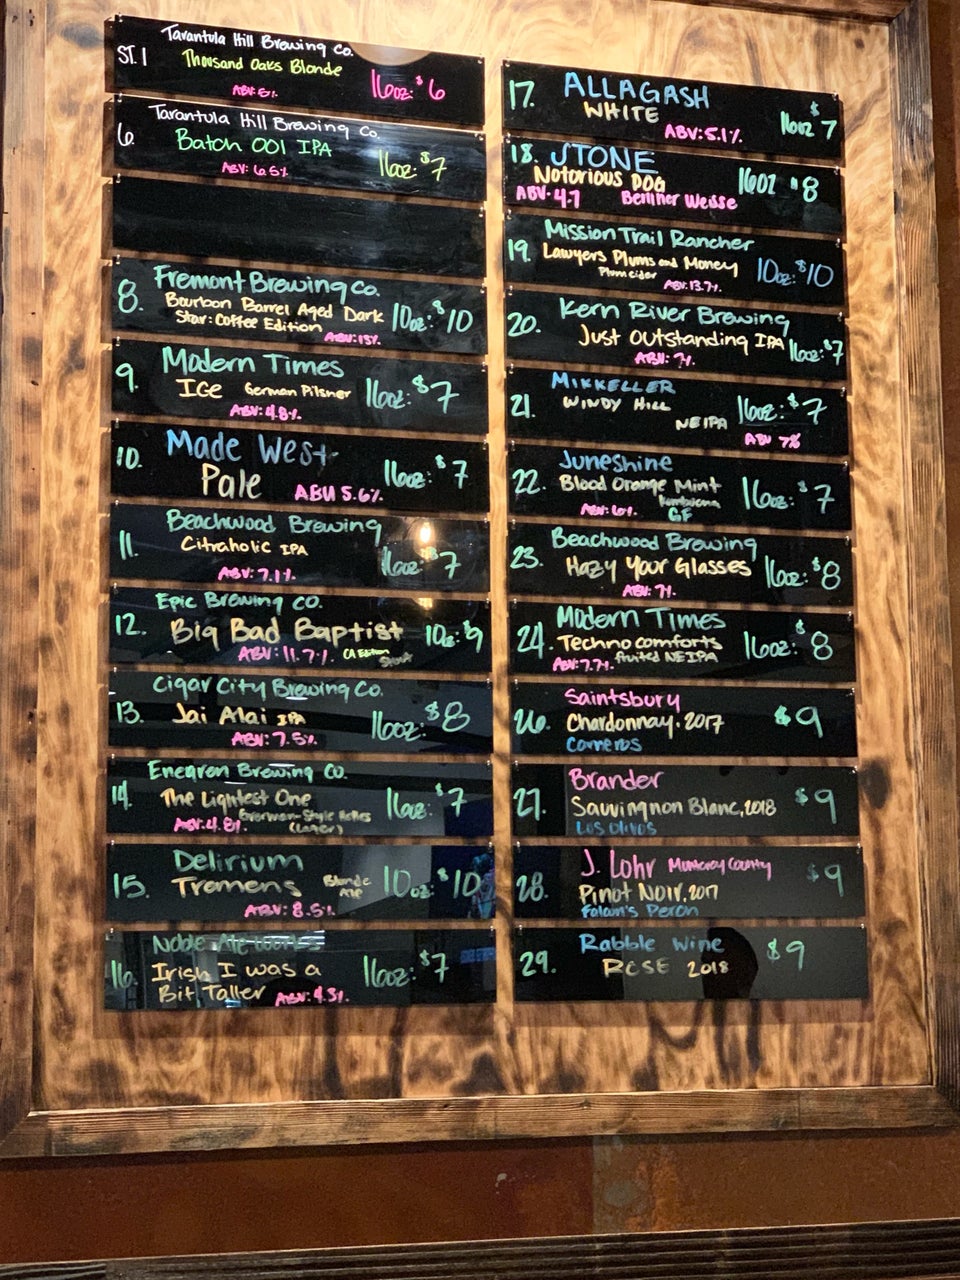 Tarantula Hill Brewing Co.
ST. 1 Thousand Oaks Blonde
ABV: 5% 16oz: $6
Tarantula Hill Brewing Co.
6. Batch 001 IPA 16oz: $7
ABV: 6.5%
Fremont Brewing Co.
8. Bourbon Barrel Aged Dark 10oz: $10
Star: Coffee Edition
ABV: 15%
Modern Times
9. ICE German Pilsner 16oz: $7
ABV: 4.8%
10. Made West 16oz: $7
Pale ABV 5.6%
Beachwood Brewing
11. Citraholic IPA 16oz: $7
ABV: 7.1%
Epic Brewing CO.
12. Big Bad Baptist 10oz: $9
ABV: 11.7% CA Edition Stout
Cigar City Brewing Co.
13. Jai Alai IPA 16oz: $8
ABV: 7.5%
Enegren Brewing Co.
14. The Lightest One 16oz: $7
ABV: 4.8% German-Style Helles
(Lager)
Delirium
15. Tremens Blonde Ale 10oz: $10
ABV: 8.5%
Noble Ale Works
16. Irish I was a 16oz: $7
Bit Taller ABV: 4.3%
17. ALLAGASH
WHITE 16oz $7
ABV: 5.1%
18. STONE
Notorious DOG 16oz $8
ABV- 4.7 Berliner Weisse
Mission Trail Rancher
19. Lawyers Plums and Money 10oz: $10
Plum cider
ABV: 13.7%
Kern River Brewing
20. Just Outstanding IPA 16oz: $7
ABV: 7%
MIKKELLER
21. WINDY HILL 16oz: $7
NEIPA
ABV 7%
Juneshine
22. Blood Orange Mint 16oz: $7
ABV: 6% Kombucha
GF
Beachwood Brewing
23. Hazy Your Glasses 16oz: $8
ABV: 7%
Modern Times
24. Techno comforts 16oz: $8
ABV: 7.7% fruited NEIPA
Saintsbury
26. Chardonnay. 2017 $9
Carneros
Brander
27. Sauvingnon Blanc, 2018 $9
Los Olivos
J. Lohr Monterey County
28. Pinot Noir, 2017 $9
Falcon's Peron
Rabble Wine
29. ROSE 2018 $9